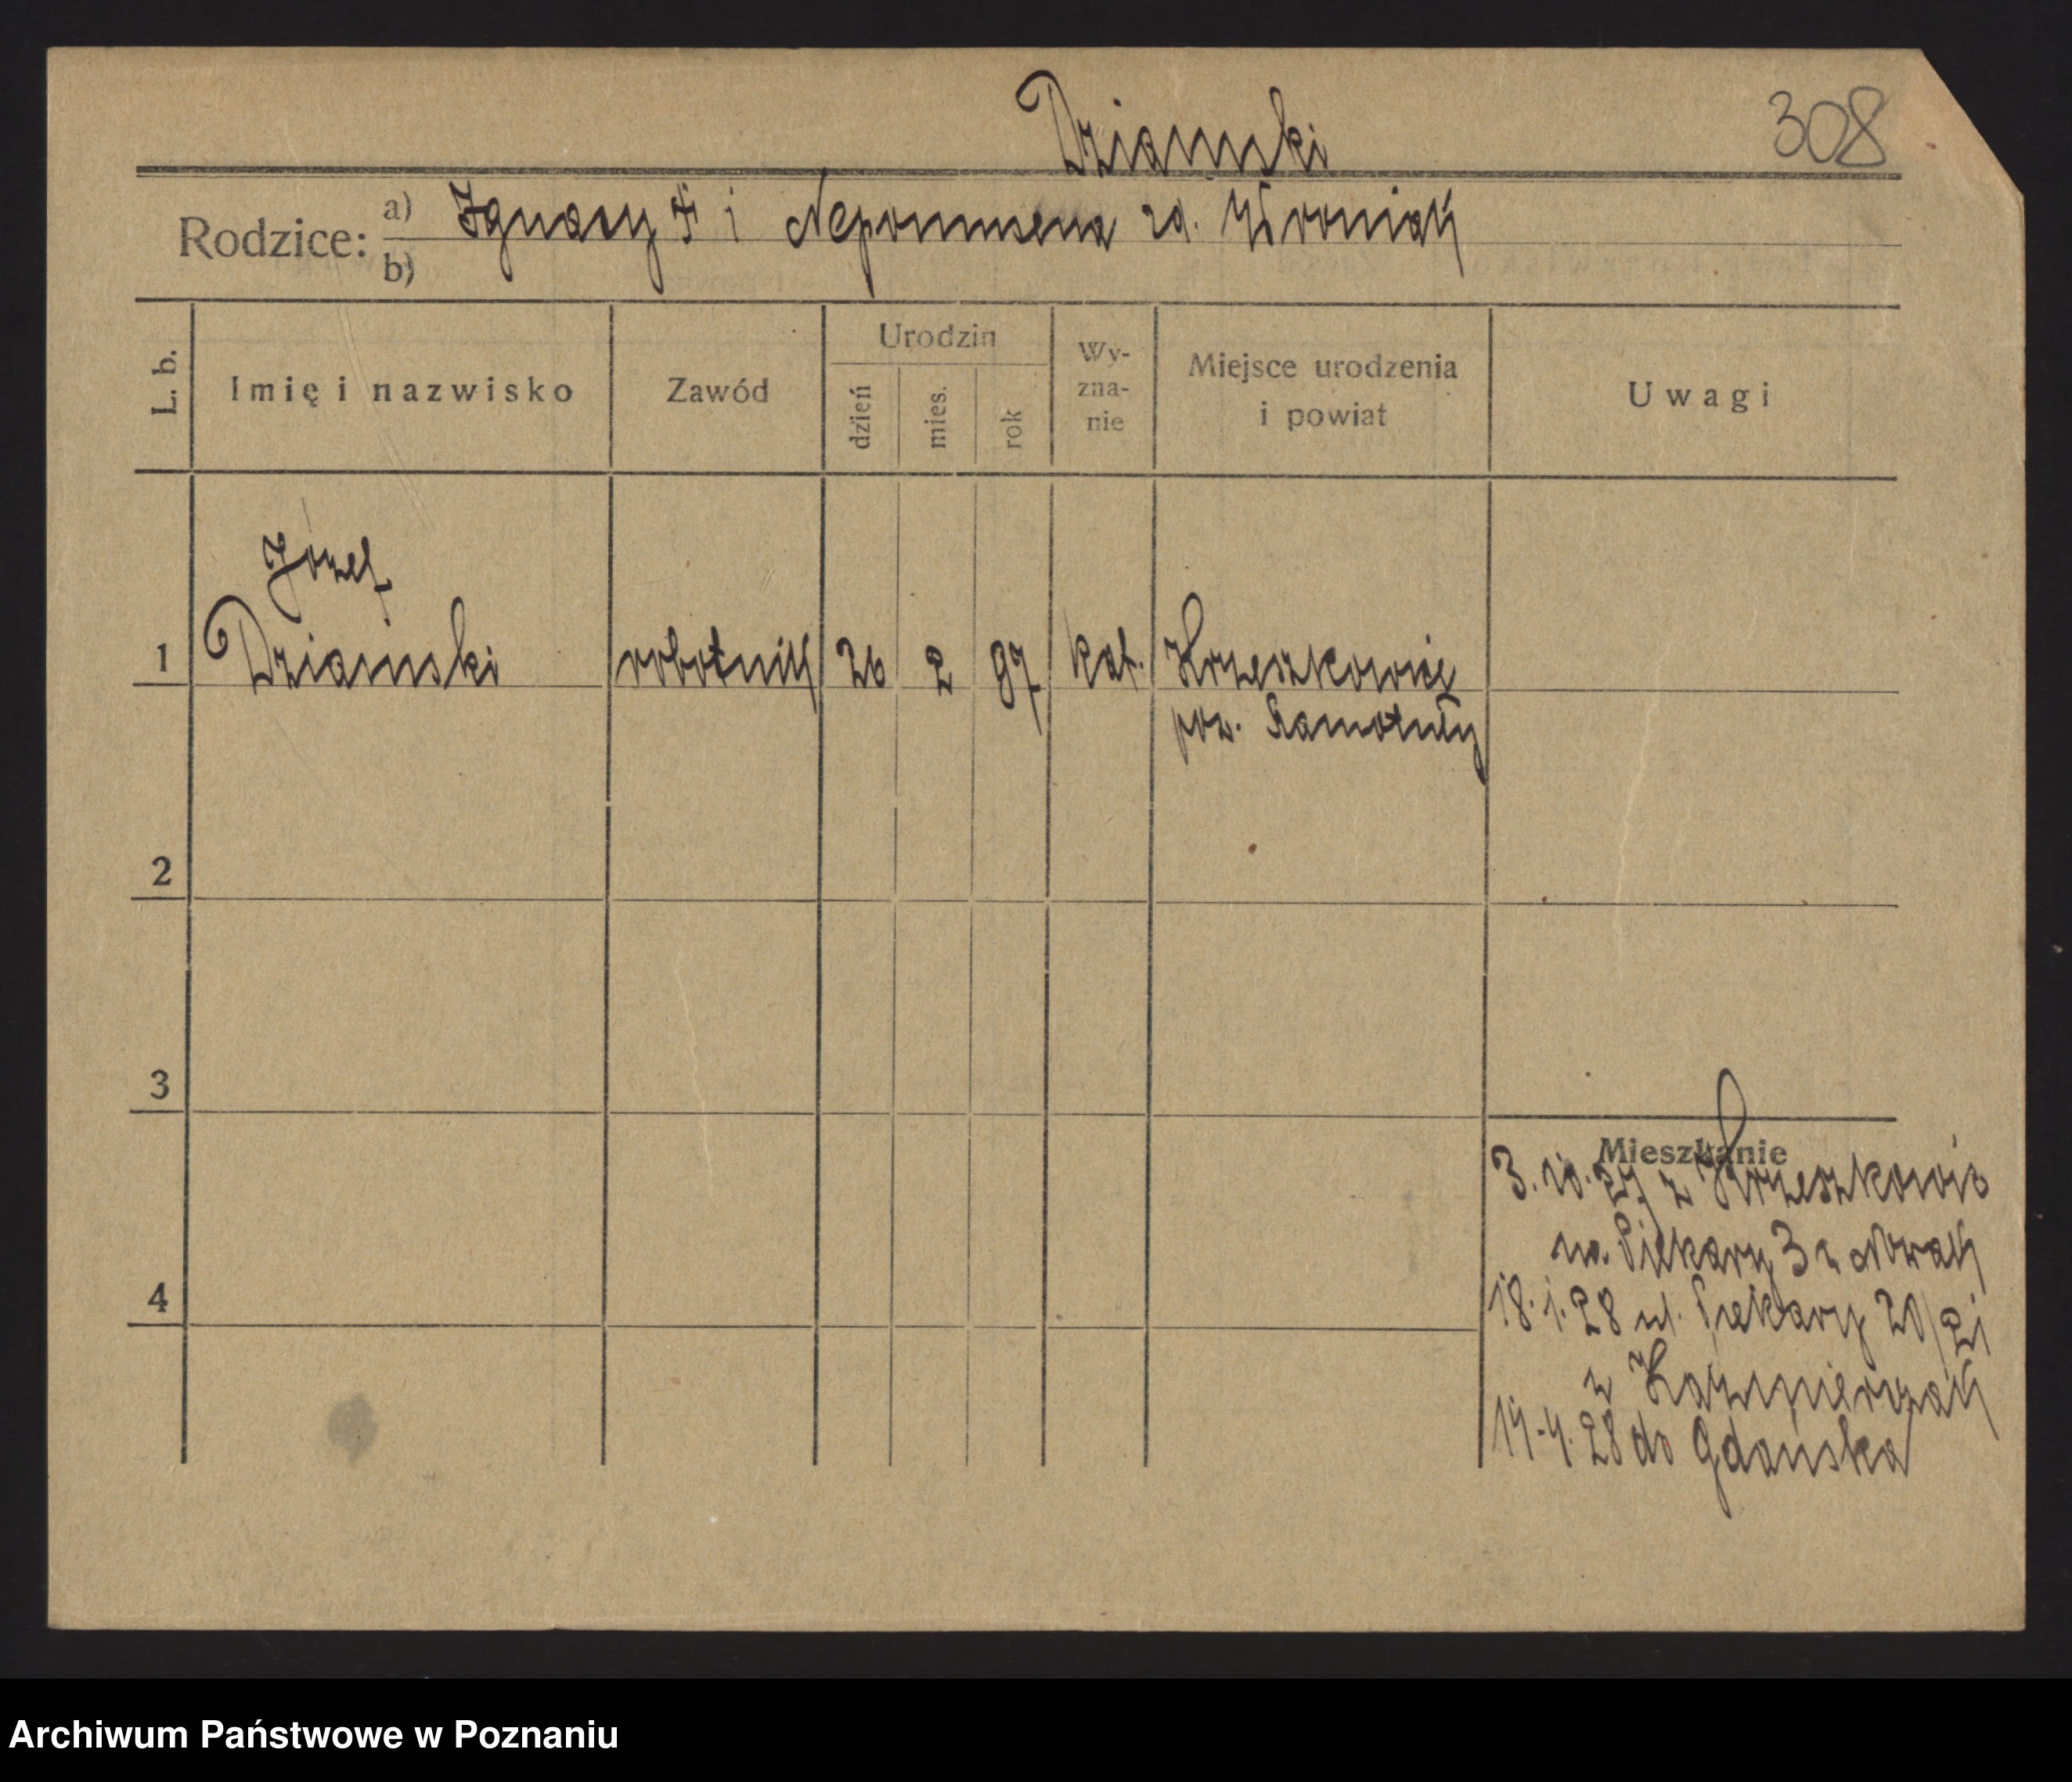 Dziamski
308
Rodzice: a) Ignacy i Nepomucena zd. Woźniak
b)
L. b.
Imię i nazwisko
Zawód
Urodzin
dzień
mies.
rok
Wy-
zna-
nie
Miejsce urodzenia
i powiat
Uwagi
Józef
1 Dziamski robotnik 26 2 97 kat. Krzeszkowice
pow. Szamotuły
2
3
4
Mieszkanie
3. 10. 27 z Krzeszkowic
na Piekary 3 u Nowak
18. 1. 28 ul. Piekary 20/21
u Kazmierczak
19. 4. 28 do Gdańska
Archiwum Państwowe w Poznaniu